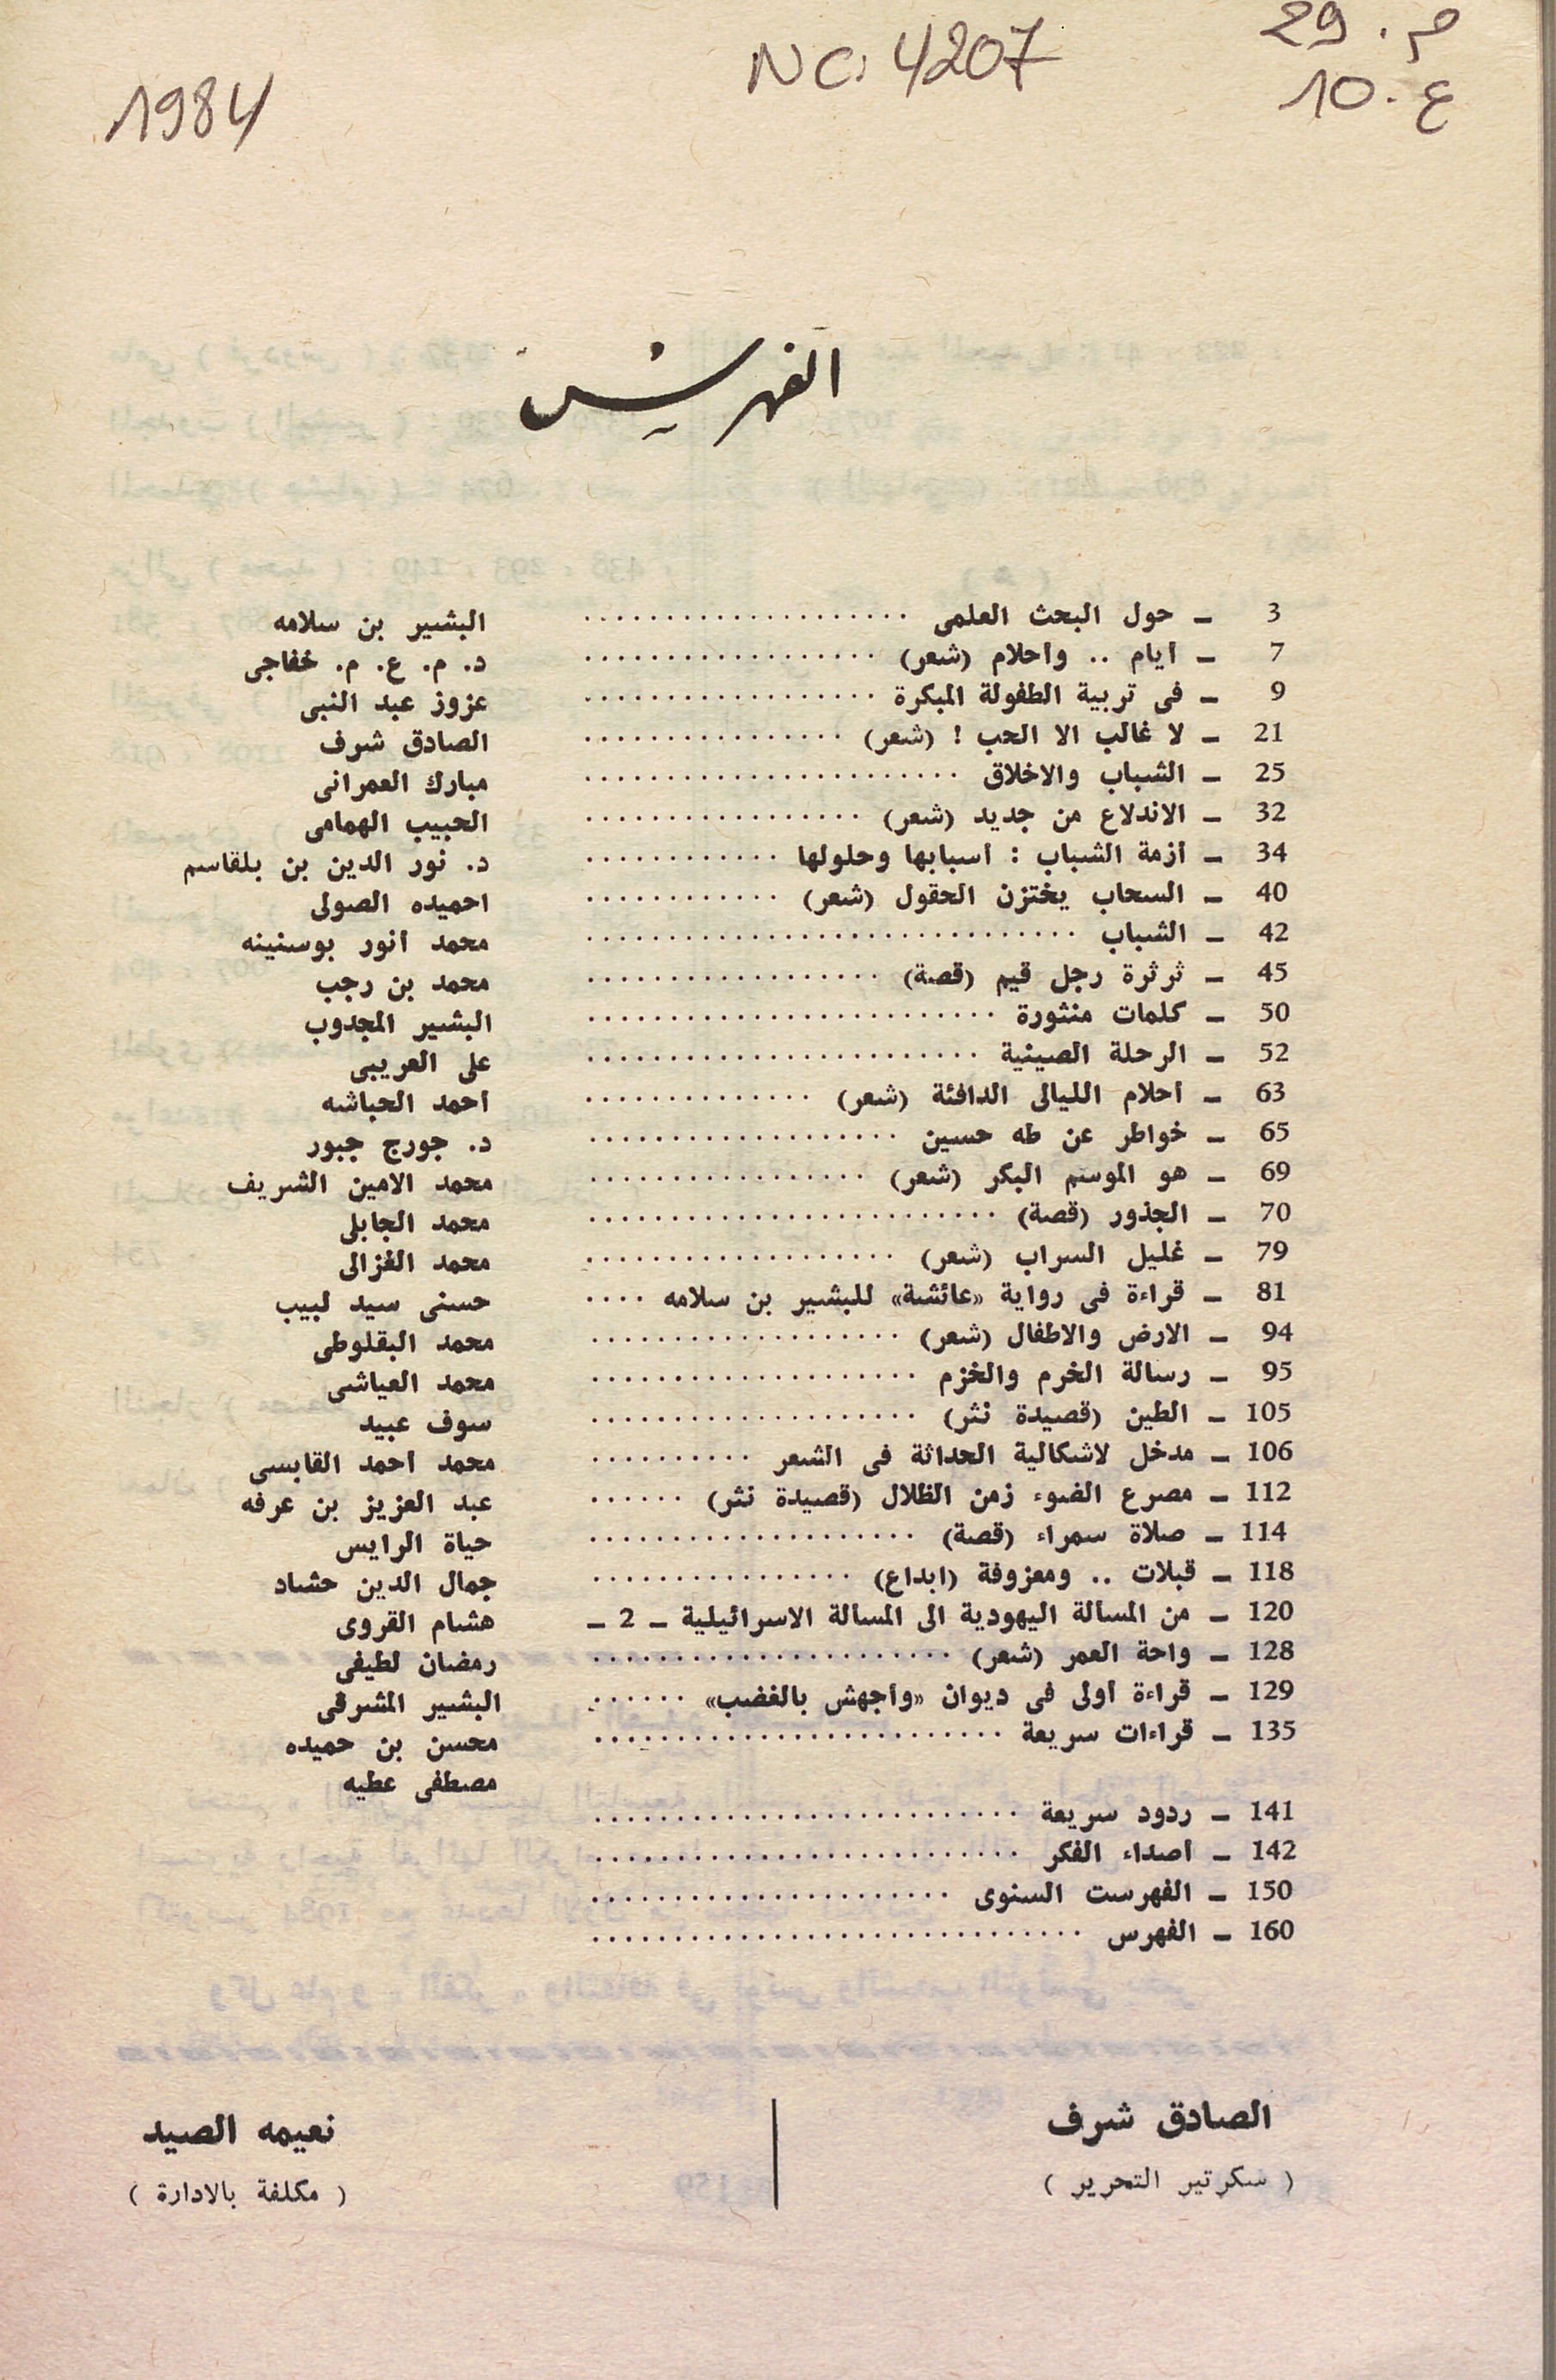 م. 29
NC: 4207
ع. 10
1984
الفهرس
3 – حول البحث العلمى .................... البشير بن سلامه
7 – أيام .. وأحلام (شعر) .................. د. م. ع. م. خفاجى
9 – فى تربية الطفولة المبكرة .................. عزوز عبد النبى
21 – لا غالب الا الحب ! (شعر) ................ الصادق شرف
25 – الشباب والاخلاق ....................... مبارك العمرانى
32 – الاندلاع من جديد (شعر) ................. الحبيب الهمامى
34 – أزمة الشباب : أسبابها وحلولها ............ د. نور الدين بن بلقاسم
40 – السحاب يختزن الحقول (شعر) ............ احميده الصولى
42 – الشباب .............................. محمد أنور بوسنينه
45 – ثرثرة رجل قيم (قصة) .................. محمد بن رجب
50 – كلمات منثورة ......................... البشير المجدوب
52 – الرحلة الصينية ........................ على العريبى
63 – أحلام الليالى الدافئة (شعر) .............. أحمد الحباشه
65 – خواطر عن طه حسين ................... د. جورج جبور
69 – هو الموسم البكر (شعر) ................. محمد الامين الشريف
70 – الجذور (قصة) ......................... محمد الجابلى
79 – غليل السراب (شعر) ................... محمد الغزالى
81 – قراءة فى رواية «عائشة» للبشير بن سلامه .... حسنى سيد لبيب
94 – الارض والاطفال (شعر) ................... محمد البقلوطى
95 – رسالة الخرم والخزم .................... محمد العياشى
105 – الطين (قصيدة نثر) .................... سوف عبيد
106 – مدخل لاشكالية الحداثة فى الشعر .......... محمد أحمد القابسى
112 – مصرع الضوء زمن الظلال (قصيدة نثر) ...... عبد العزيز بن عرفه
114 – صلاة سمراء (قصة) .................... حياة الرايس
118 – قبلات .. ومعزوفة (ابداع) ................ جمال الدين حشاد
120 – من المسألة اليهودية الى المسألة الاسرائيلية – 2 – هشام القروى
128 – واحة العمر (شعر) ...................... رمضان لطيفى
129 – قراءة أولى فى ديوان «وأجهش بالغضب» ...... البشير المشرقى
135 – قراءات سريعة ......................... محسن بن حميده
مصطفى عطيه
141 – ردود سريعة ..........................
142 – أصداء الفكر ..........................
150 – الفهرست السنوى ......................
160 – الفهرس ..............................
الصادق شرف
( سكرتير التحرير )
نعيمه الصيد
( مكلفة بالادارة )